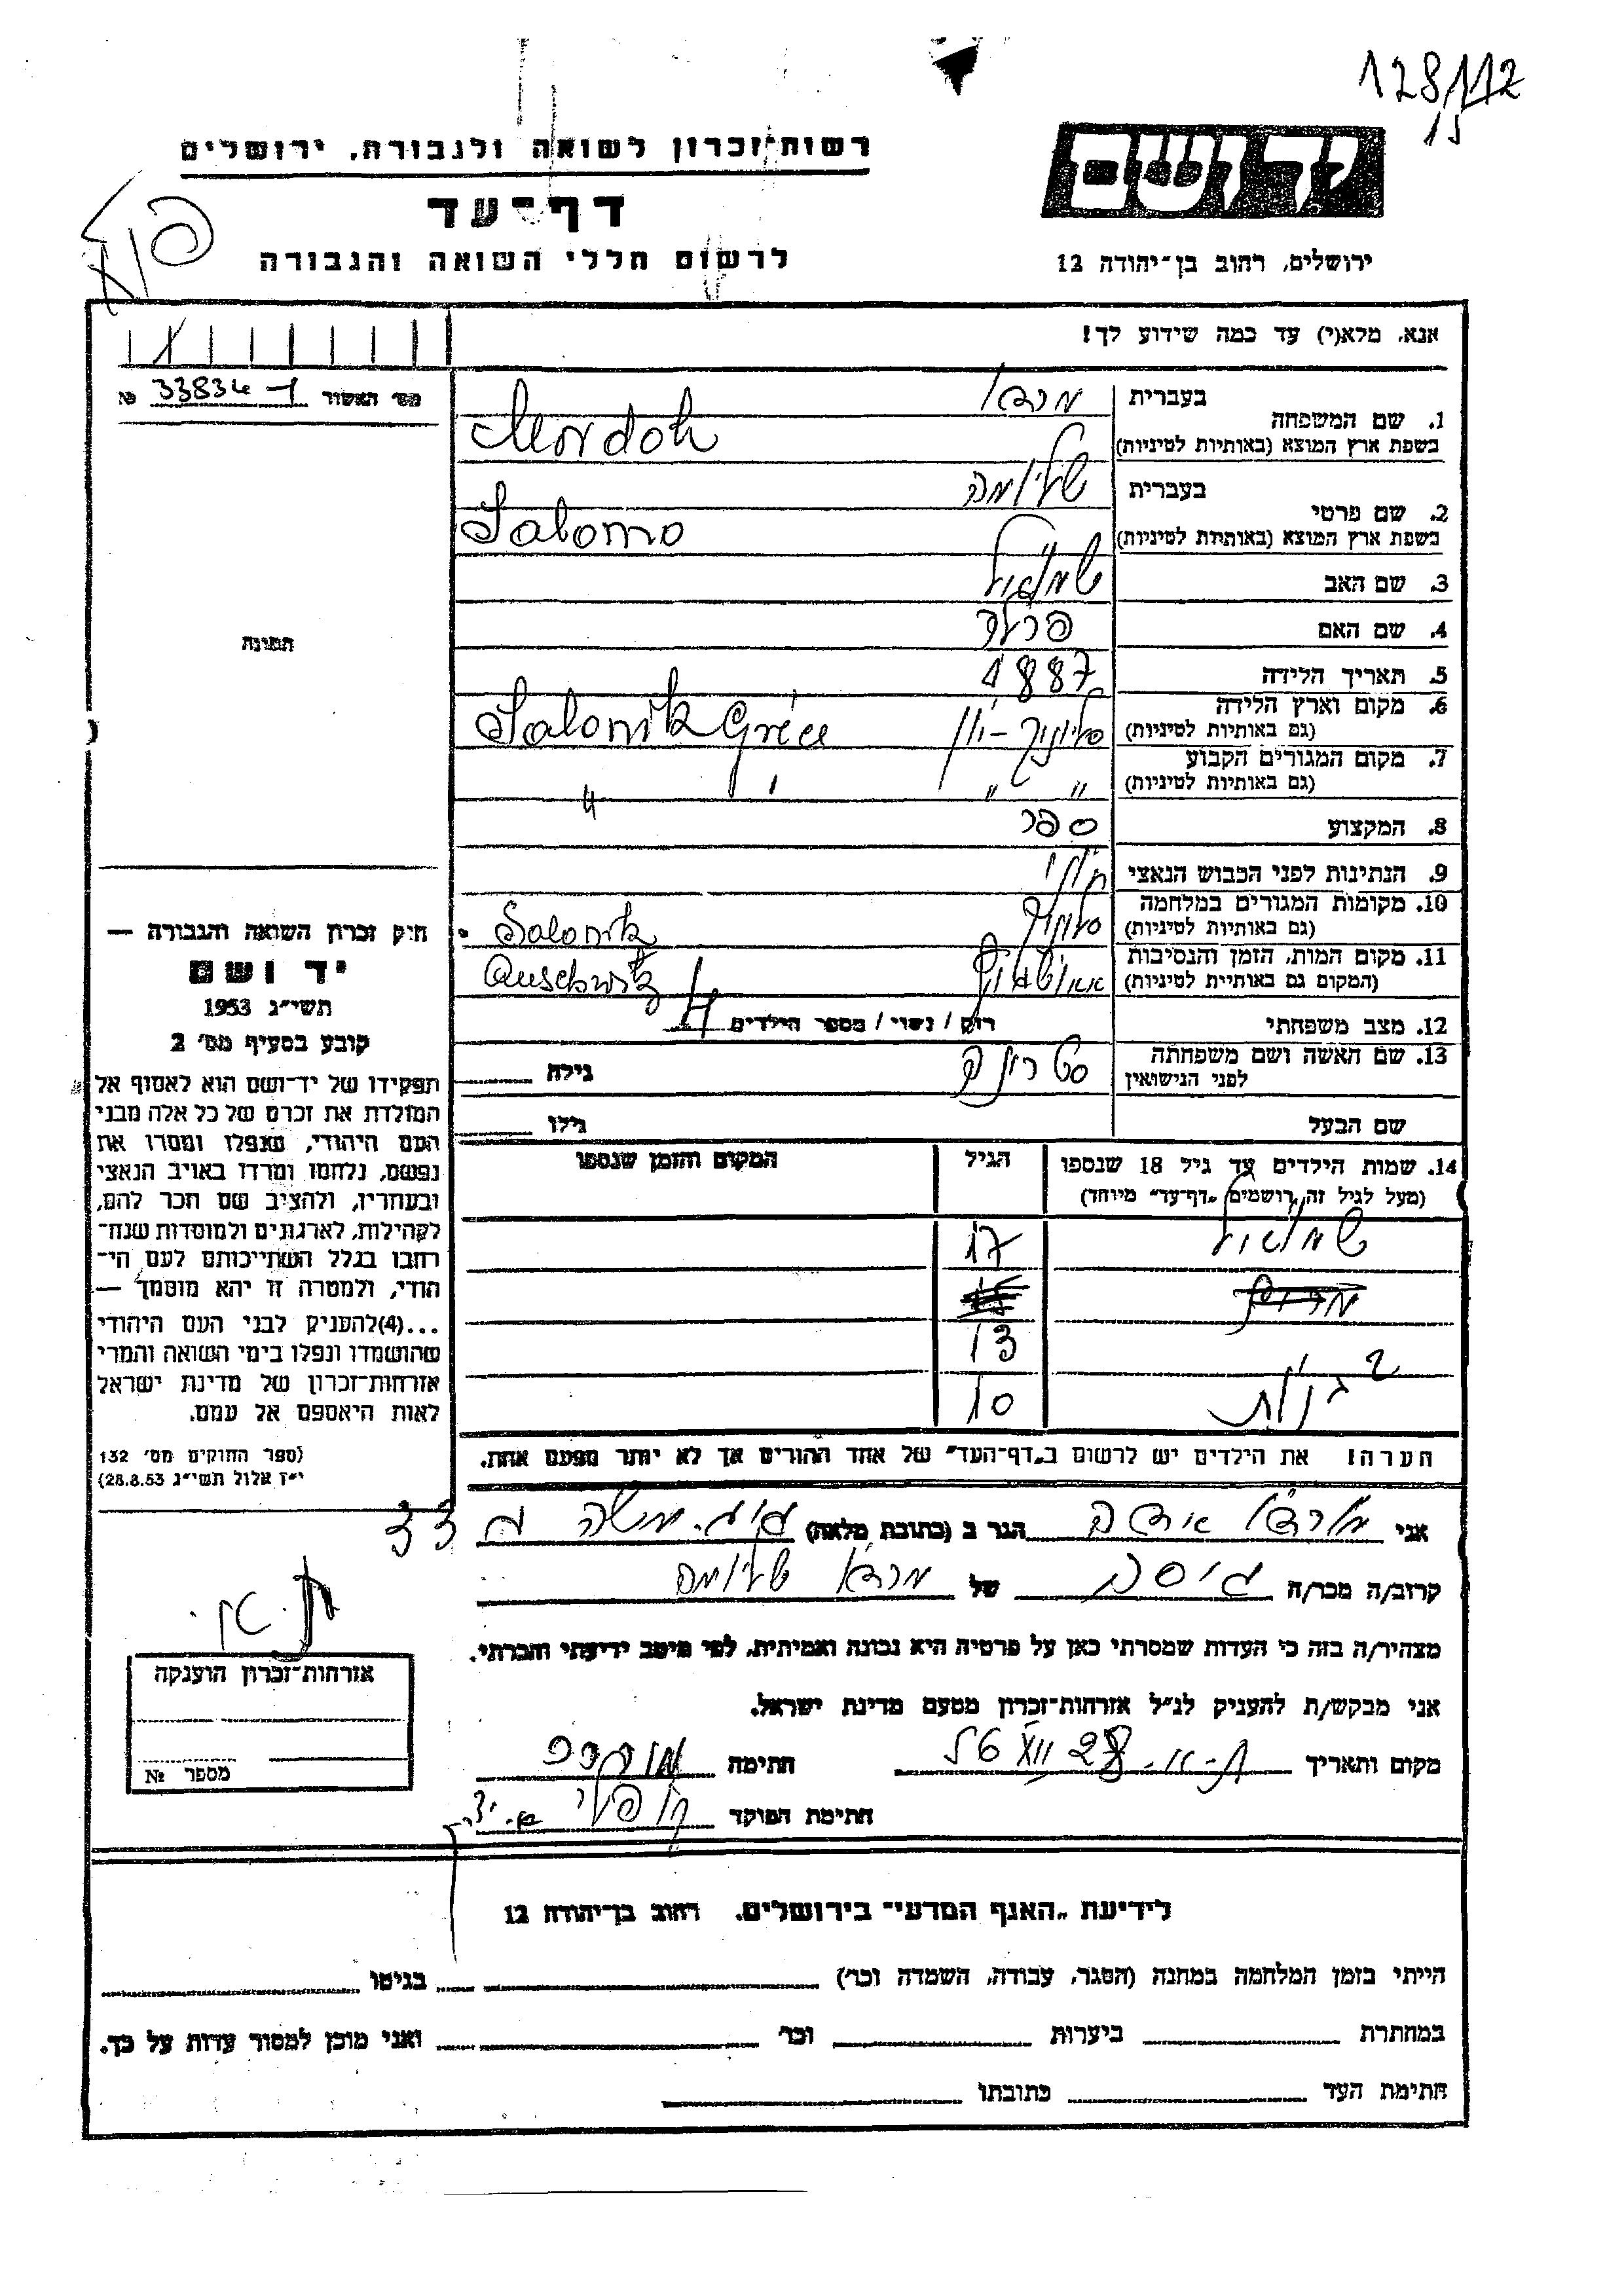 128/112
15
ידושם
ירושלים, רחוב בן־יהודה 12
רשות־זכרון לשואה ולגבורה, ירושלים
דף־עד
לרשום חללי השואה והגבורה
אנא, מלא(י) עד כמה שידוע לך!
מס׳ האשור 33834-1 №
בעברית
1. שם המשפחה
בשפת ארץ המוצא (באותיות לטיניות)
Mordoh
בעברית שלומה
2. שם פרטי
בשפת ארץ המוצא (באותיות לטיניות)
Salomo
3. שם האב שמואל
4. שם האם
5. תאריך הלידה 1887
6. מקום וארץ הלידה סלוניק - יון
(גם באותיות לטיניות) Salonik Gréce
7. מקום המגורים הקבוע
(גם באותיות לטיניות) " " " "
8. המקצוע ספר
9. הנתינות לפני הכבוש הנאצי יוני
10. מקומות המגורים במלחמה סלוניק
(גם באותיות לטיניות) Salonik
11. מקום המות, הזמן והנסיבות
(המקום גם באותיות לטיניות) Auschwitz
12. מצב משפחתי רוק / נשוי / מספר הילדים 4
13. שם האשה ושם משפחתה
לפני הנישואין
גילה
שם הבעל גילו
14. שמות הילדים עד גיל 18 שנספו
(מעל לגיל זה, רושמים „דף־עד״ מיוחד)
הגיל
המקום והזמן שנספו
שמואל 17
13
10
הערה! את הילדים יש לרשום ב„דף־העד״ של אחד ההורים אך לא יותר מפעם אחת.
תמונה
חיק זכרון השואה והגבורה —
יד ושם
תשי״ג 1953
קובע בסעיף מס׳ 2
תפקידו של יד־ושם הוא לאסוף אל
המולדת את זכרם של כל אלה מבני
העם היהודי, שנפלו ומסרו את
נפשם, נלחמו ומרדו באויב הנאצי
ובעוזריו, ולהציב שם וזכר להם,
לקהילות, לארגונים ולמוסדות שנח־
רבו בגלל השתייכותם לעם הי־
הודי, ולמטרה זו יהא מוסמך —
...(4)להעניק לבני העם היהודי
שהושמדו ונפלו בימי השואה והמרי
אזרחות־זכרון של מדינת ישראל
לאות היאספם אל עמם.
(ספר החוקים מס׳ 132
י״ז אלול תשי״ג 28.8.53)
אני הגר ב (כתובת מלאה) 33
קרוב/ה מכר/ה גיסה של שלומה
מצהיר/ה בזה כי העדות שמסרתי כאן על פרטיה היא נכונה ואמיתית, לפי מיטב ידיעתי והכרתי.
אני מבקש/ת להעניק לנ״ל אזרחות־זכרון מטעם מדינת ישראל.
מקום ותאריך ת-א- חתימה
חתימת הפוקד
אזרחות־זכרון הוענקה
מספר №
לידיעת „האגף המדעי״ בירושלים, רחוב בן־יהודה 12
הייתי בזמן המלחמה במחנה (הסגר, עבודה, השמדה וכו׳) בגיטו
במחתרת ביערות וכו׳ ואני מוכן למסור עדות על כך.
חתימת העד כתובתו